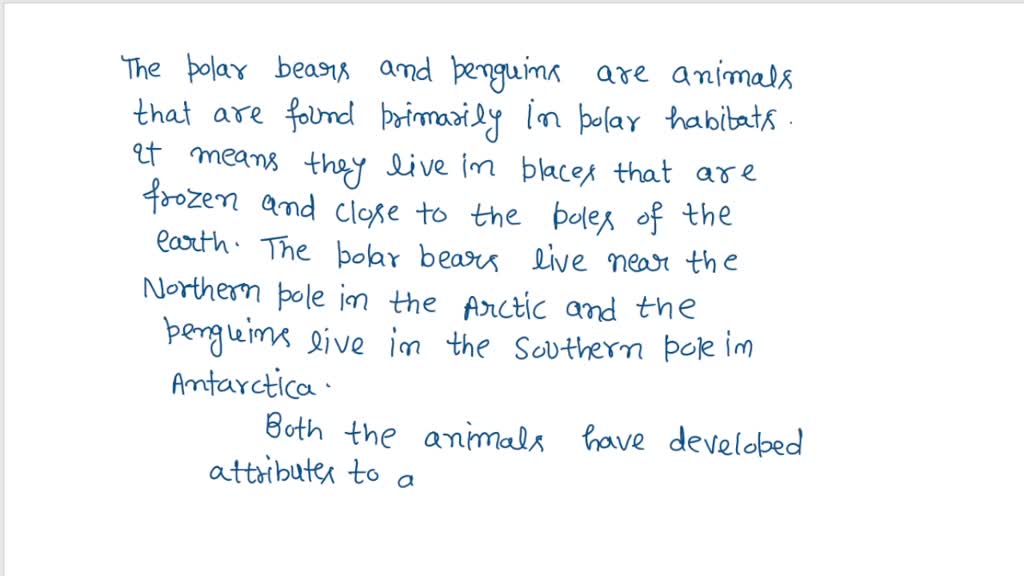 The polar bears and penguins are animals
that are found primarily in polar habitats.
It means they live in places that are
frozen and close to the poles of the
earth. The polar bears live near the
Northern pole in the Arctic and the
penguins live in the Southern pole in
Antarctica.
Both the animals have developed
attributes to a